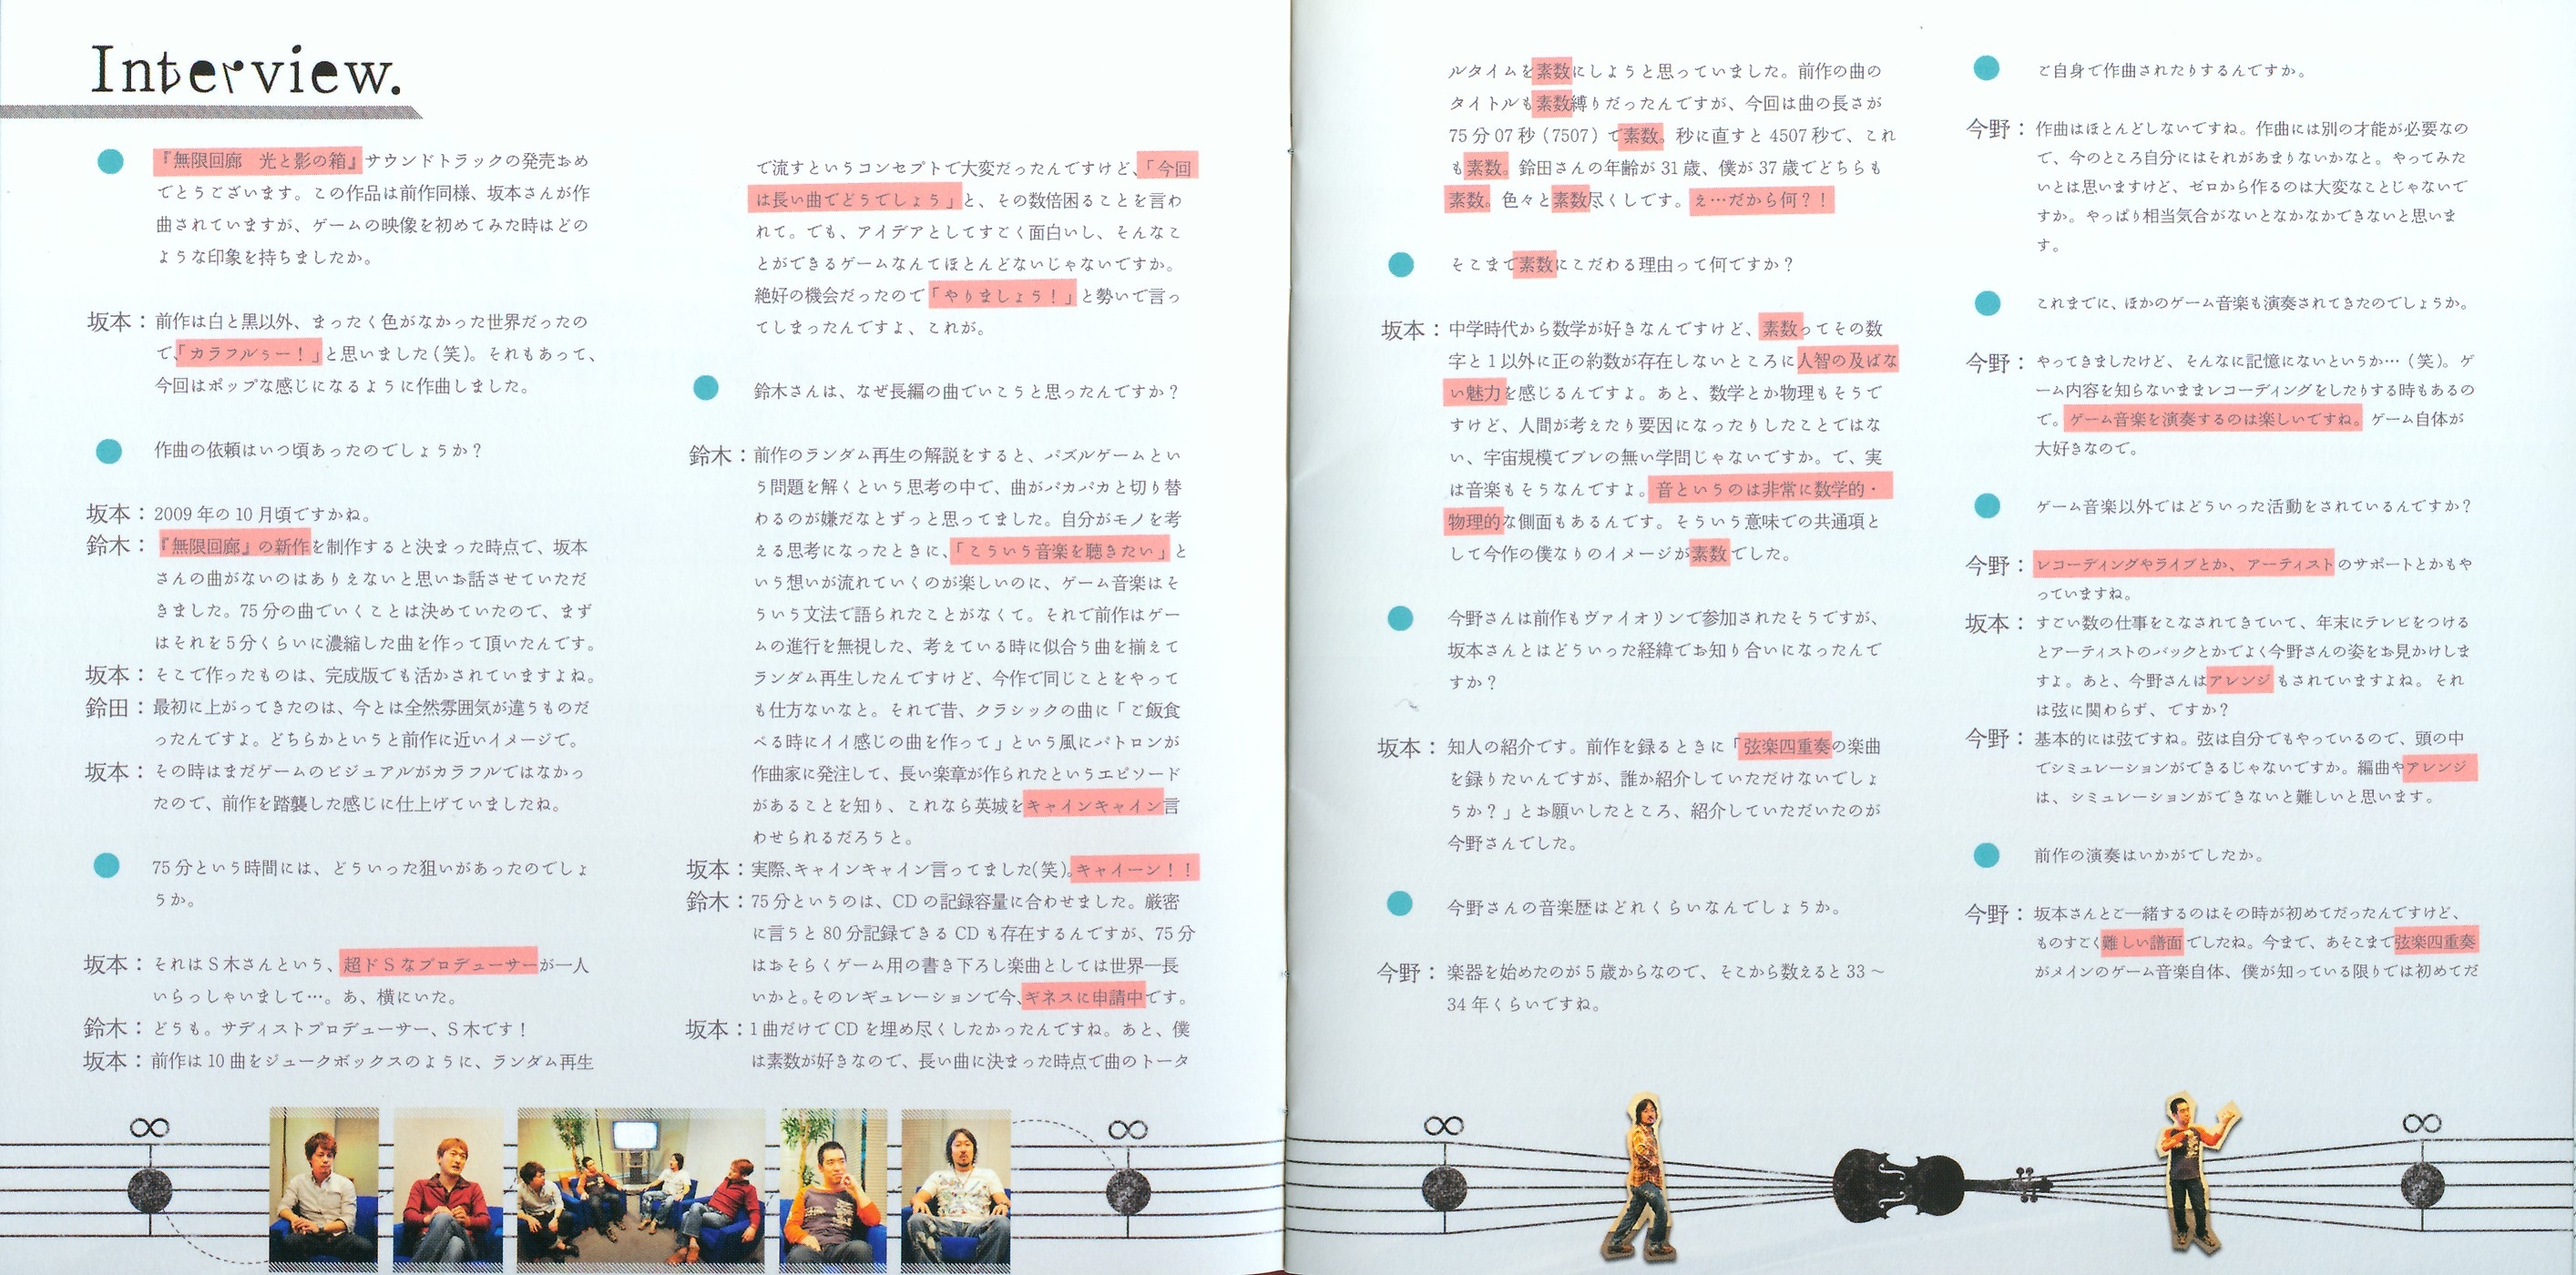 Interview.
『無限回廊　光と影の箱』サウンドトラックの発売おめ
でとうございます。この作品は前作同様、坂本さんが作
曲されていますが、ゲームの映像を初めてみた時はどの
ような印象を持ちましたか。
坂本：前作は白と黒以外、まったく色がなかった世界だったの
で、「カラフルぅー！」と思いました（笑）。それもあって、
今回はポップな感じになるように作曲しました。
作曲の依頼はいつ頃あったのでしょうか？
坂本：2009 年の 10 月頃ですかね。
鈴木：『無限回廊』の新作を制作すると決まった時点で、坂本
さんの曲がないのはありえないと思いお話させていただ
きました。75 分の曲でいくことは決めていたので、まず
はそれを5分くらいに濃縮した曲を作って頂いたんです。
坂本：そこで作ったものは、完成版でも活かされていますよね。
鈴田：最初に上がってきたのは、今とは全然雰囲気が違うものだ
ったんですよ。どちらかというと前作に近いイメージで。
坂本：その時はまだゲームのビジュアルがカラフルではなかっ
たので、前作を踏襲した感じに仕上げていましたね。
75 分という時間には、どういった狙いがあったのでしょ
うか。
坂本：それはＳ木さんという、超ドＳなプロデューサーが一人
いらっしゃいまして…。あ、横にいた。
鈴木：どうも。サディストプロデューサー、Ｓ木です！
坂本：前作は 10 曲をジュークボックスのように、ランダム再生
で流すというコンセプトで大変だったんですけど、「今回
は長い曲でどうでしょう」と、その数倍困ることを言わ
れて。でも、アイデアとしてすごく面白いし、そんなこ
とができるゲームなんてほとんどないじゃないですか。
絶好の機会だったので「やりましょう！」と勢いで言っ
てしまったんですよ、これが。
鈴木さんは、なぜ長編の曲でいこうと思ったんですか？
鈴木：前作のランダム再生の解説をすると、パズルゲームとい
う問題を解くという思考の中で、曲がパカパカと切り替
わるのが嫌だなとずっと思ってました。自分がモノを考
える思考になったときに、「こういう音楽を聴きたい」と
いう想いが流れていくのが楽しいのに、ゲーム音楽はそ
ういう文法で語られたことがなくて。それで前作はゲー
ムの進行を無視した、考えている時に似合う曲を揃えて
ランダム再生したんですけど、今作で同じことをやって
も仕方ないなと。それで昔、クラシックの曲に「ご飯食
べる時にイイ感じの曲を作って」という風にパトロンが
作曲家に発注して、長い楽章が作られたというエピソード
があることを知り、これなら英城をキャインキャイン言
わせられるだろうと。
坂本：実際、キャインキャイン言ってました（笑）。キャイーン！！
鈴木：75 分というのは、CD の記録容量に合わせました。厳密
に言うと 80 分記録できる CD も存在するんですが、75 分
はおそらくゲーム用の書き下ろし楽曲としては世界一長
いかと。そのレギュレーションで今、ギネスに申請中です。
坂本：1曲だけで CD を埋め尽くしたかったんですね。あと、僕
は素数が好きなので、長い曲に決まった時点で曲のトータ
ルタイムを素数にしようと思っていました。前作の曲の
タイトルも素数縛りだったんですが、今回は曲の長さが
75 分 07 秒（7507）で素数。秒に直すと 4507 秒で、これ
も素数。鈴田さんの年齢が 31 歳、僕が 37 歳でどちらも
素数。色々と素数尽くしです。え…だから何？！
そこまで素数にこだわる理由って何ですか？
坂本：中学時代から数学が好きなんですけど、素数ってその数
字と 1 以外に正の約数が存在しないところに人智の及ばな
い魅力を感じるんですよ。あと、数学とか物理もそうで
すけど、人間が考えたり要因になったりしたことではな
い、宇宙規模でブレの無い学問じゃないですか。で、実
は音楽もそうなんですよ。音というのは非常に数学的・
物理的な側面もあるんです。そういう意味での共通項と
して今作の僕なりのイメージが素数でした。
今野さんは前作もヴァイオリンで参加されたそうですが、
坂本さんとはどういった経緯でお知り合いになったんで
すか？
坂本：知人の紹介です。前作を録るときに「弦楽四重奏の楽曲
を録りたいんですが、誰か紹介していただけないでしょ
うか？」とお願いしたところ、紹介していただいたのが
今野さんでした。
今野さんの音楽歴はどれくらいなんでしょうか。
今野：楽器を始めたのが 5 歳からなので、そこから数えると 33 ～
34 年くらいですね。
ご自身で作曲されたりするんですか。
今野：作曲はほとんどしないですね。作曲には別の才能が必要なの
で、今のところ自分にはそれがあまりないかなと。やってみた
いとは思いますけど、ゼロから作るのは大変なことじゃないで
すか。やっぱり相当気合がないとなかなかできないと思いま
す。
これまでに、ほかのゲーム音楽も演奏されてきたのでしょうか。
今野：やってきましたけど、そんなに記憶にないというか…（笑）。ゲ
ーム内容を知らないままレコーディングをしたりする時もあるの
で。ゲーム音楽を演奏するのは楽しいですね。ゲーム自体が
大好きなので。
ゲーム音楽以外ではどういった活動をされているんですか？
今野：レコーディングやライブとか、アーティストのサポートとかもや
っていますね。
坂本：すごい数の仕事をこなされてきていて、年末にテレビをつける
とアーティストのバックとかでよく今野さんの姿をお見かけしま
すよ。あと、今野さんはアレンジもされていますよね。それ
は弦に関わらず、ですか？
今野：基本的には弦ですね。弦は自分でもやっているので、頭の中
でシミュレーションができるじゃないですか。編曲やアレンジ
は、シミュレーションができないと難しいと思います。
前作の演奏はいかがでしたか。
今野：坂本さんとご一緒するのはその時が初めてだったんですけど、
ものすごく難しい譜面でしたね。今まで、あそこまで弦楽四重奏
がメインのゲーム音楽自体、僕が知っている限りでは初めてだ